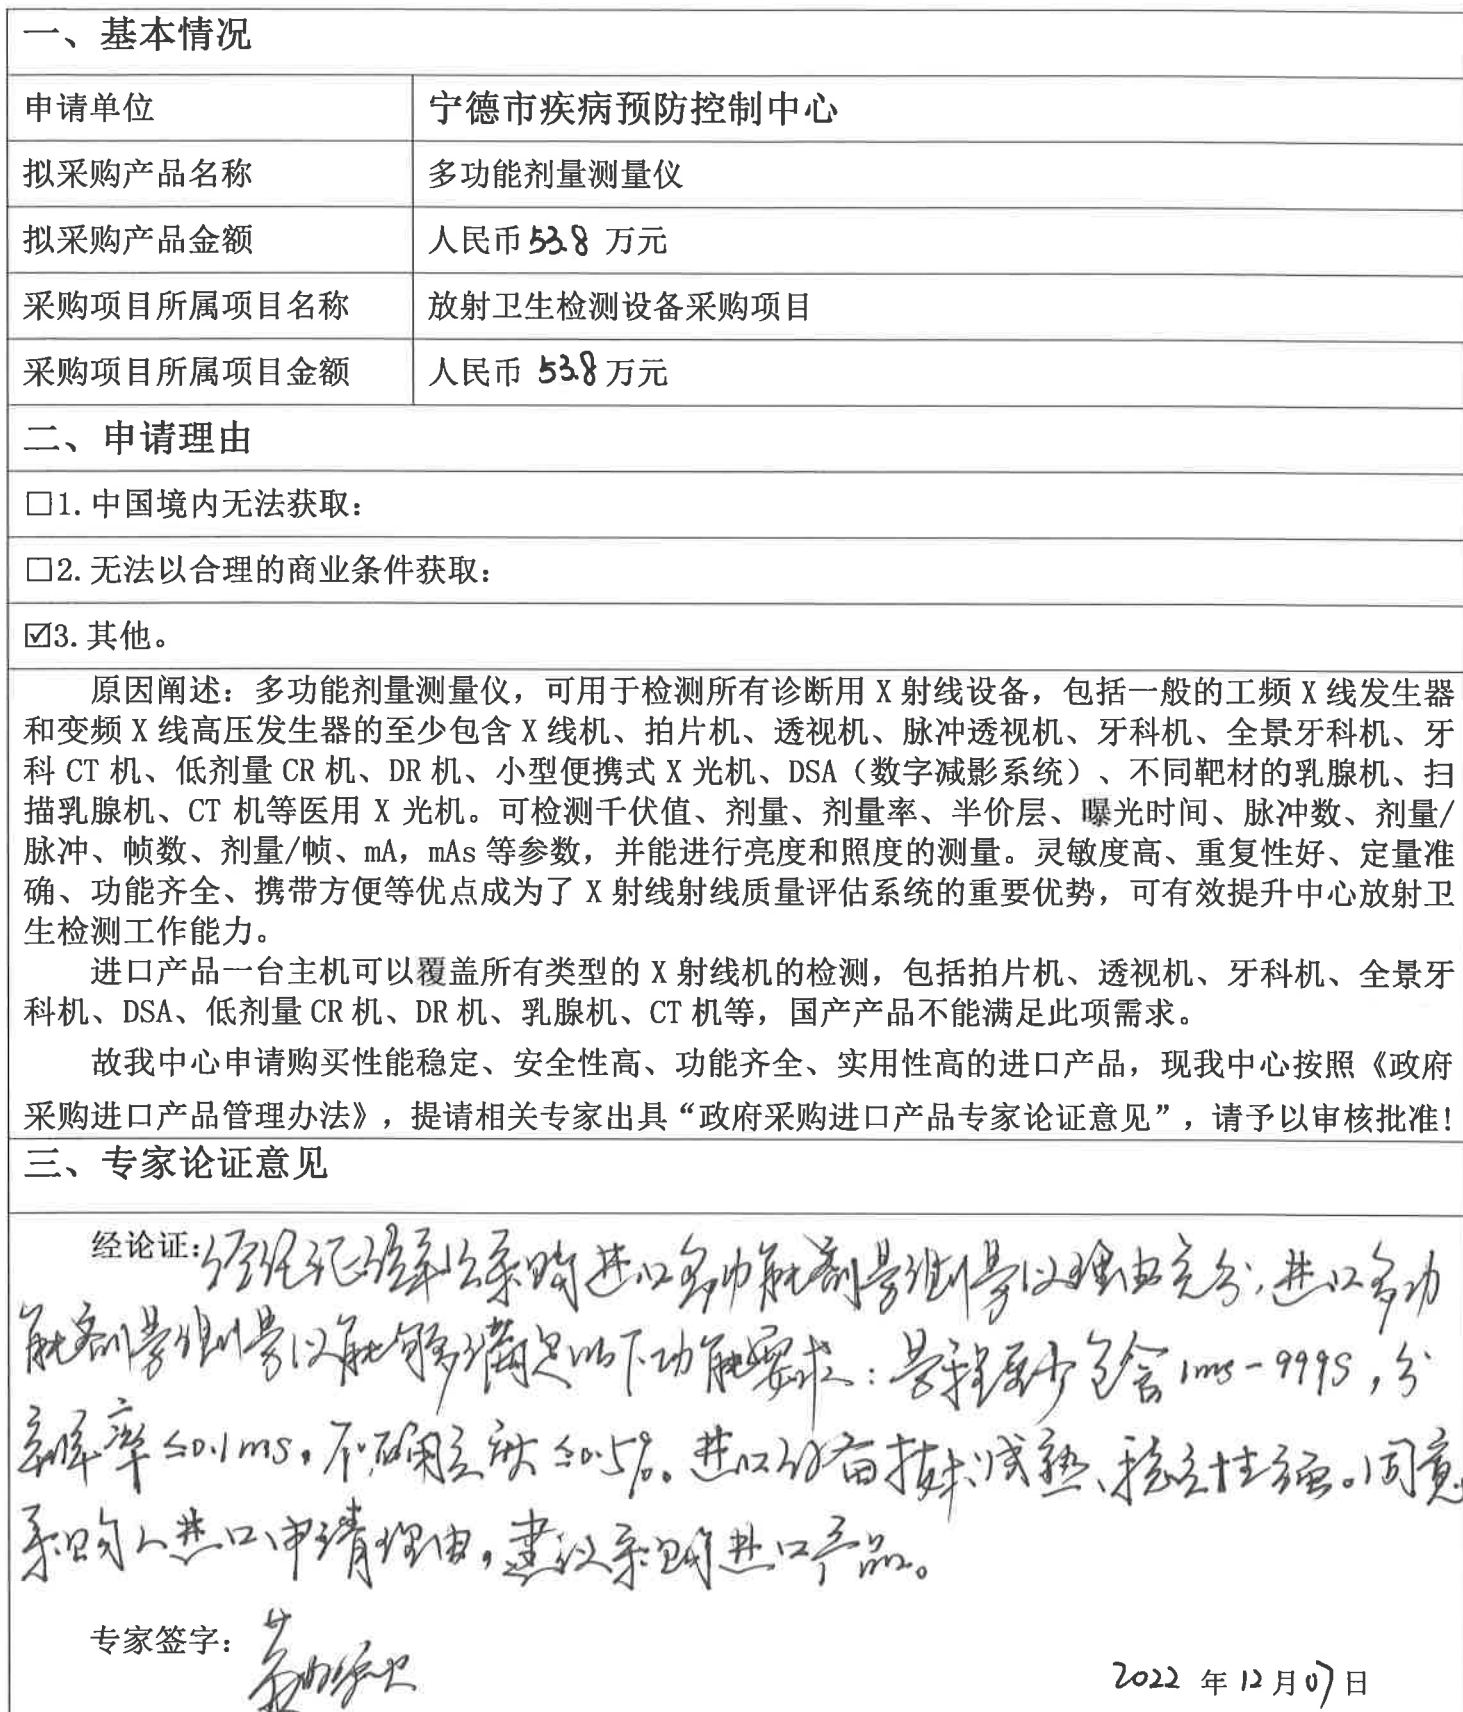 一、基本情况
申请单位 宁德市疾病预防控制中心
拟采购产品名称 多功能剂量测量仪
拟采购产品金额 人民币 53.8 万元
采购项目所属项目名称 放射卫生检测设备采购项目
采购项目所属项目金额 人民币 53.8 万元
二、申请理由
☐1.中国境内无法获取：
☐2.无法以合理的商业条件获取：
☑3.其他。
原因阐述：多功能剂量测量仪，可用于检测所有诊断用 X 射线设备，包括一般的工频 X 线发生器
和变频 X 线高压发生器的至少包含 X 线机、拍片机、透视机、脉冲透视机、牙科机、全景牙科机、牙
科 CT 机、低剂量 CR 机、DR 机、小型便携式 X 光机、DSA（数字减影系统）、不同靶材的乳腺机、扫
描乳腺机、CT 机等医用 X 光机。可检测千伏值、剂量、剂量率、半价层、曝光时间、脉冲数、剂量/
脉冲、帧数、剂量/帧、mA，mAs 等参数，并能进行亮度和照度的测量。灵敏度高、重复性好、定量准
确、功能齐全、携带方便等优点成为了 X 射线射线质量评估系统的重要优势，可有效提升中心放射卫
生检测工作能力。
进口产品一台主机可以覆盖所有类型的 X 射线机的检测，包括拍片机、透视机、牙科机、全景牙
科机、DSA、低剂量 CR 机、DR 机、乳腺机、CT 机等，国产产品不能满足此项需求。
故我中心申请购买性能稳定、安全性高、功能齐全、实用性高的进口产品，现我中心按照《政府
采购进口产品管理办法》，提请相关专家出具“政府采购进口产品专家论证意见”，请予以审核批准！
三、专家论证意见
经论证：经论证该单位采购进口多功能剂量测量仪理由充分，进口多功
能剂量测量仪能够满足以下功能要求：量程至少包含1ms-999s，分
辨率≤0.1ms，不确定度≤0.5%。进口设备技术成熟、稳定性强。同意
采购人进口申请理由，建议采购进口产品。
专家签字：
2022 年 12 月 07 日